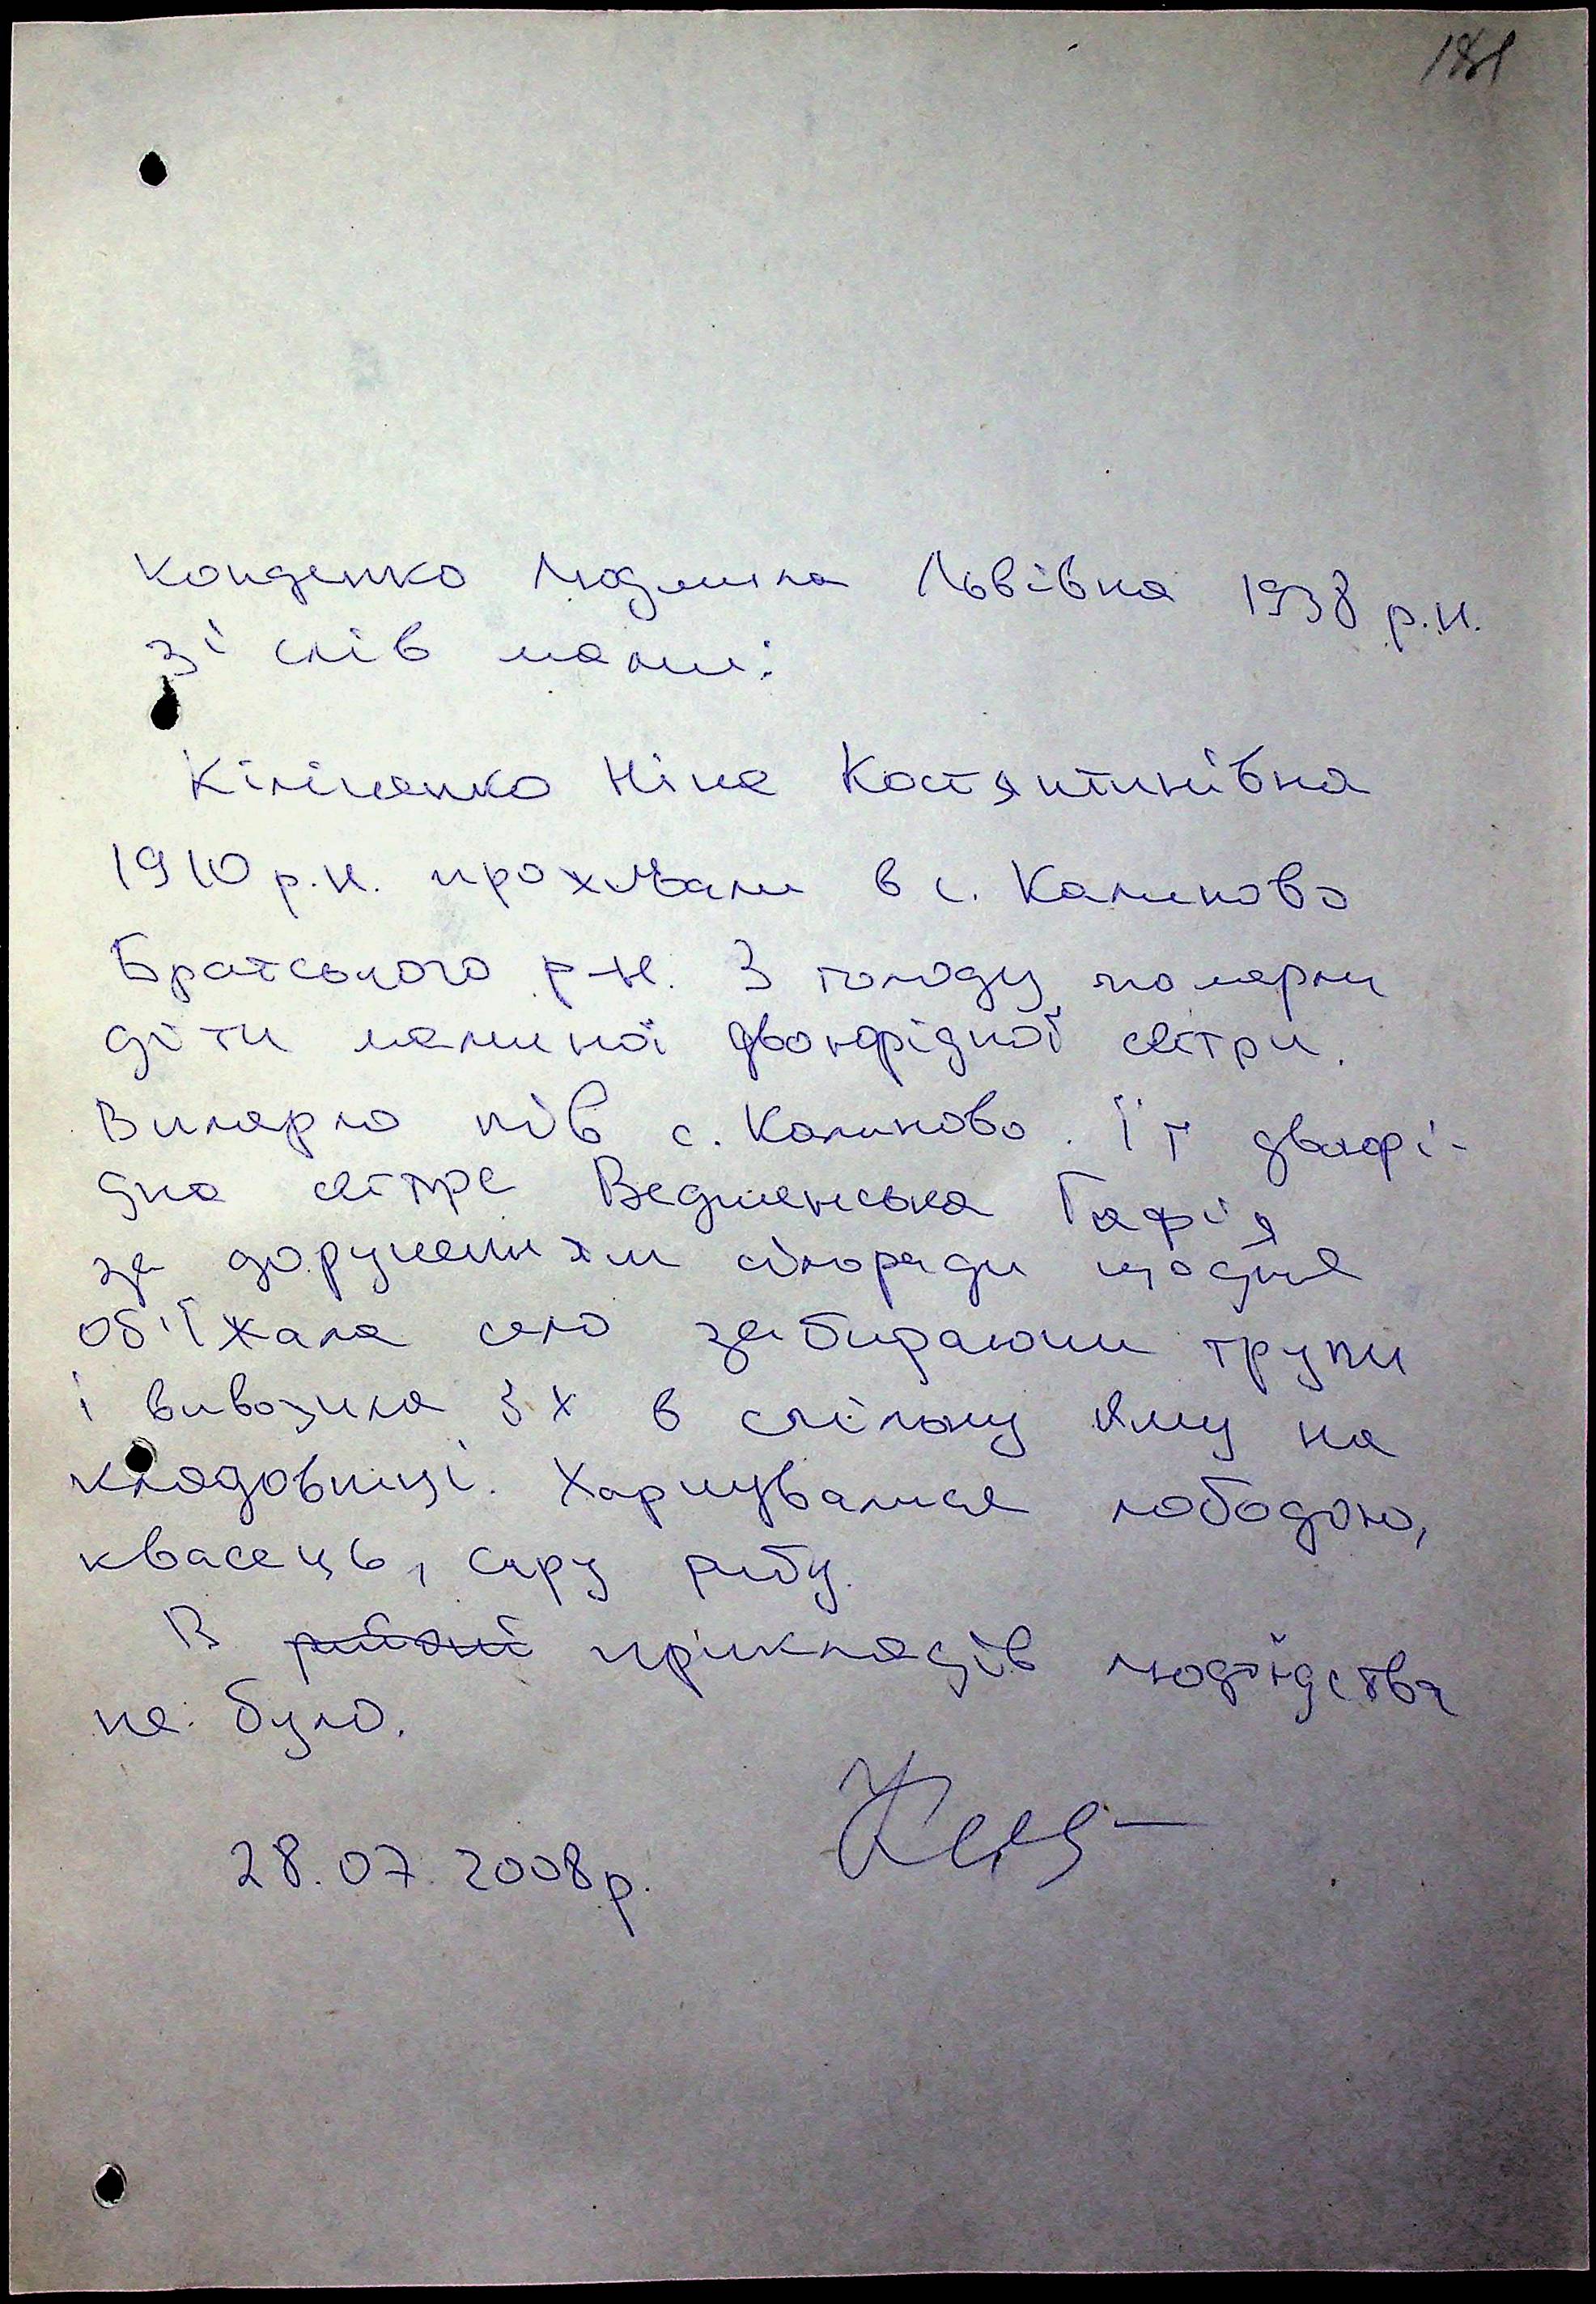 181
Конденко Людмила Львівна 1938 р.н.
зі слів мами:
Кініченко Ніна Костянтинівна
1910 р.н. проживали в с. Калиново
Братського р-н. З голоду померли
діти маминої двоюрідної сестри.
Вимерло пів с. Калиново. Її двоюрі-
дна сестра Ведменська Гафія
за дорученням сільради щодня
об'їжала село забираючи трупи
і вивозила їх в спільну яму на
кладовищі. Харчувалися лободою,
квасець, сиру рибу.
В районі прикладів людоїдства
не було.
28.07.2008р.